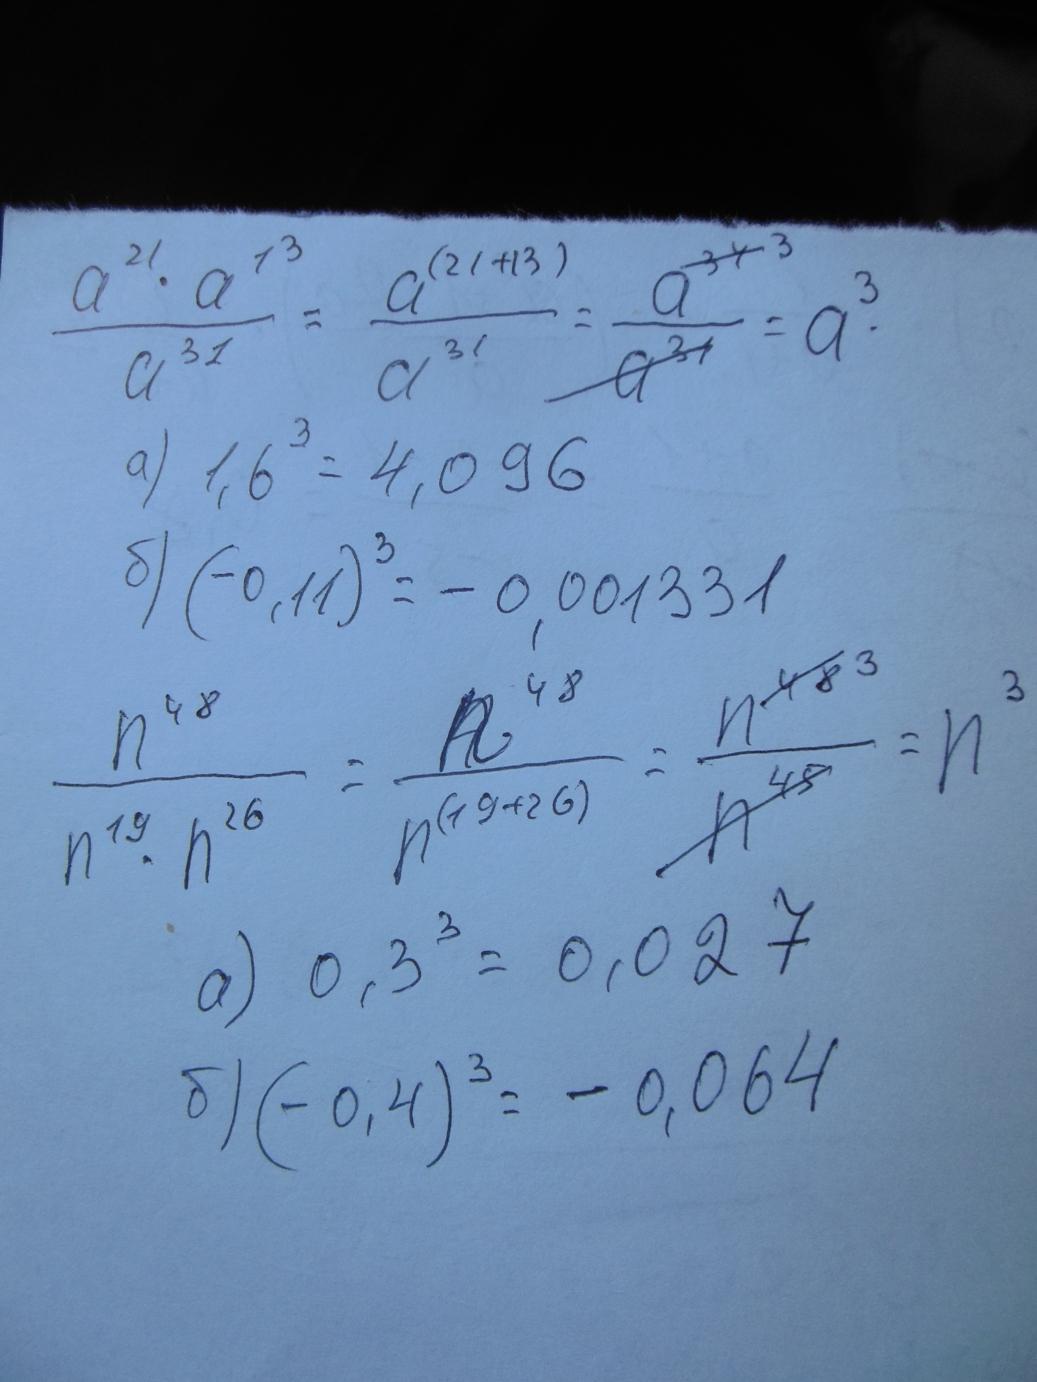 a²¹ · a¹³ / a³¹ = a⁽²¹⁺¹³⁾ / a³¹ = a³⁴ ³ / a³¹ = a³.
а) 1,6³ = 4,096
б) (-0,11)³ = - 0,001331
n⁴⁸ / n¹⁹ · n²⁶ = n⁴⁸ / n⁽¹⁹⁺²⁶⁾ = n⁴⁸ ³ / n⁴⁵ = n³
а) 0,3³ = 0,027
б) (-0,4)³ = - 0,064